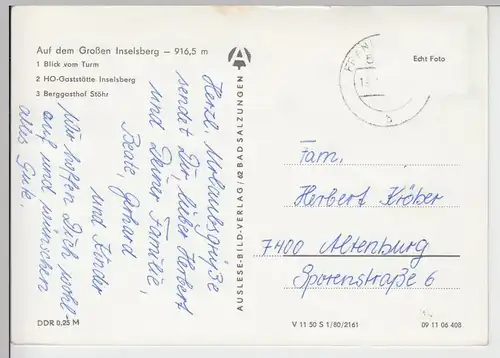 Auf dem Großen Inselsberg – 916,5 m
1 Blick vom Turm
2 HO-Gaststätte Inselsberg
3 Berggasthof Stöhr
Herzl. Urlaubsgrüße
sendet Dir, lieber Herbert
und Deiner Familie,
Beate, Gerhard
und Kinder
Wir hoffen Dich wohl-
auf und wünschen
alles Gute.
DDR 0,25 M
A
AUSLESE-BILD-VERLAG / 62 BAD SALZUNGEN
Echt Foto
Fam.
Herbert Kröber
7400 Altenburg
Sporenstraße 6
V 11 50 S 1/80/2161
09 11 06 408